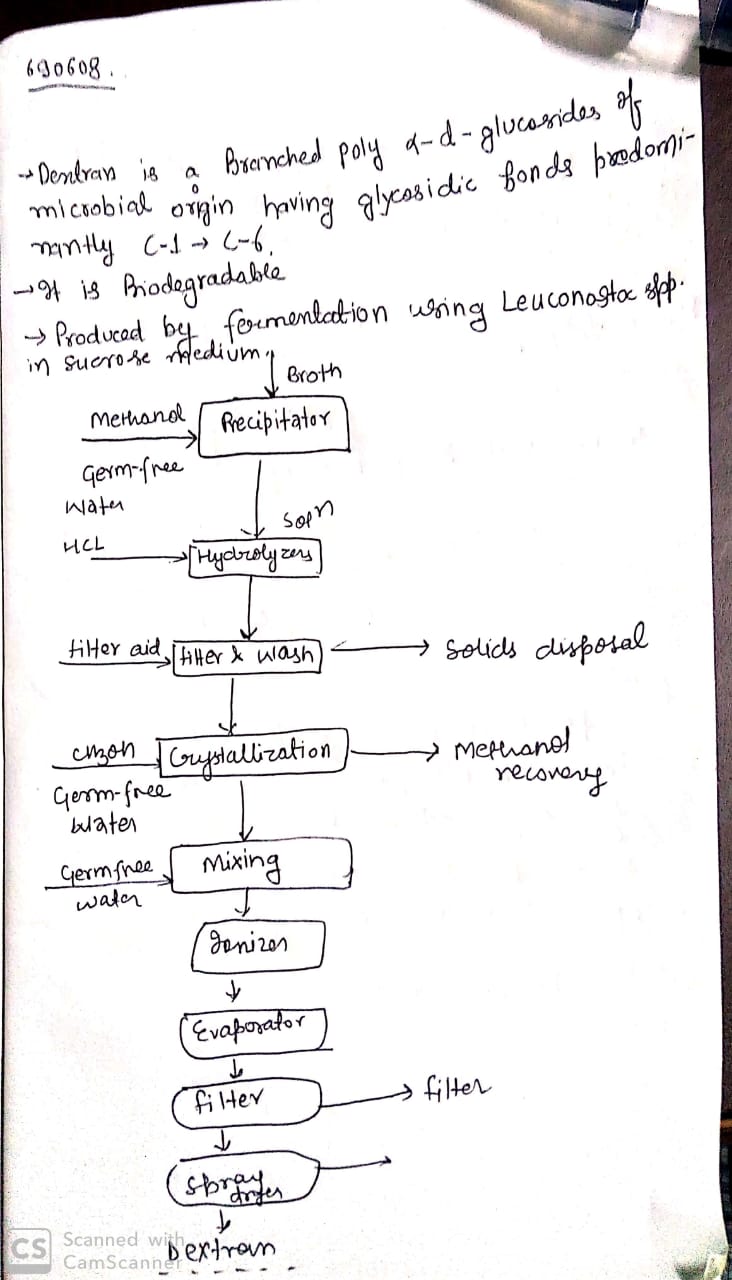 690608.
→ Dentran is a Branched poly α-d-glucosides of
microbial origin having glycosidic bonds predomi-
nantly C-1 → C-6.
→ It is Biodegradable
→ Produced by fermentation using Leuconostoc spp.
in sucrose Medium.
Broth
Methanol
Precipitator
Germ-free
Water
Sopn
HCL
Hydrolyzers
filter aid
filter & wash
Solids disposal
Crystallization
Methanol
recovery
Germ-free
Water
Germfree
water
Mixing
Ionizer
Evaporator
filter
filter
Spray
dryer
Dextran
CS
Scanned with
CamScanner